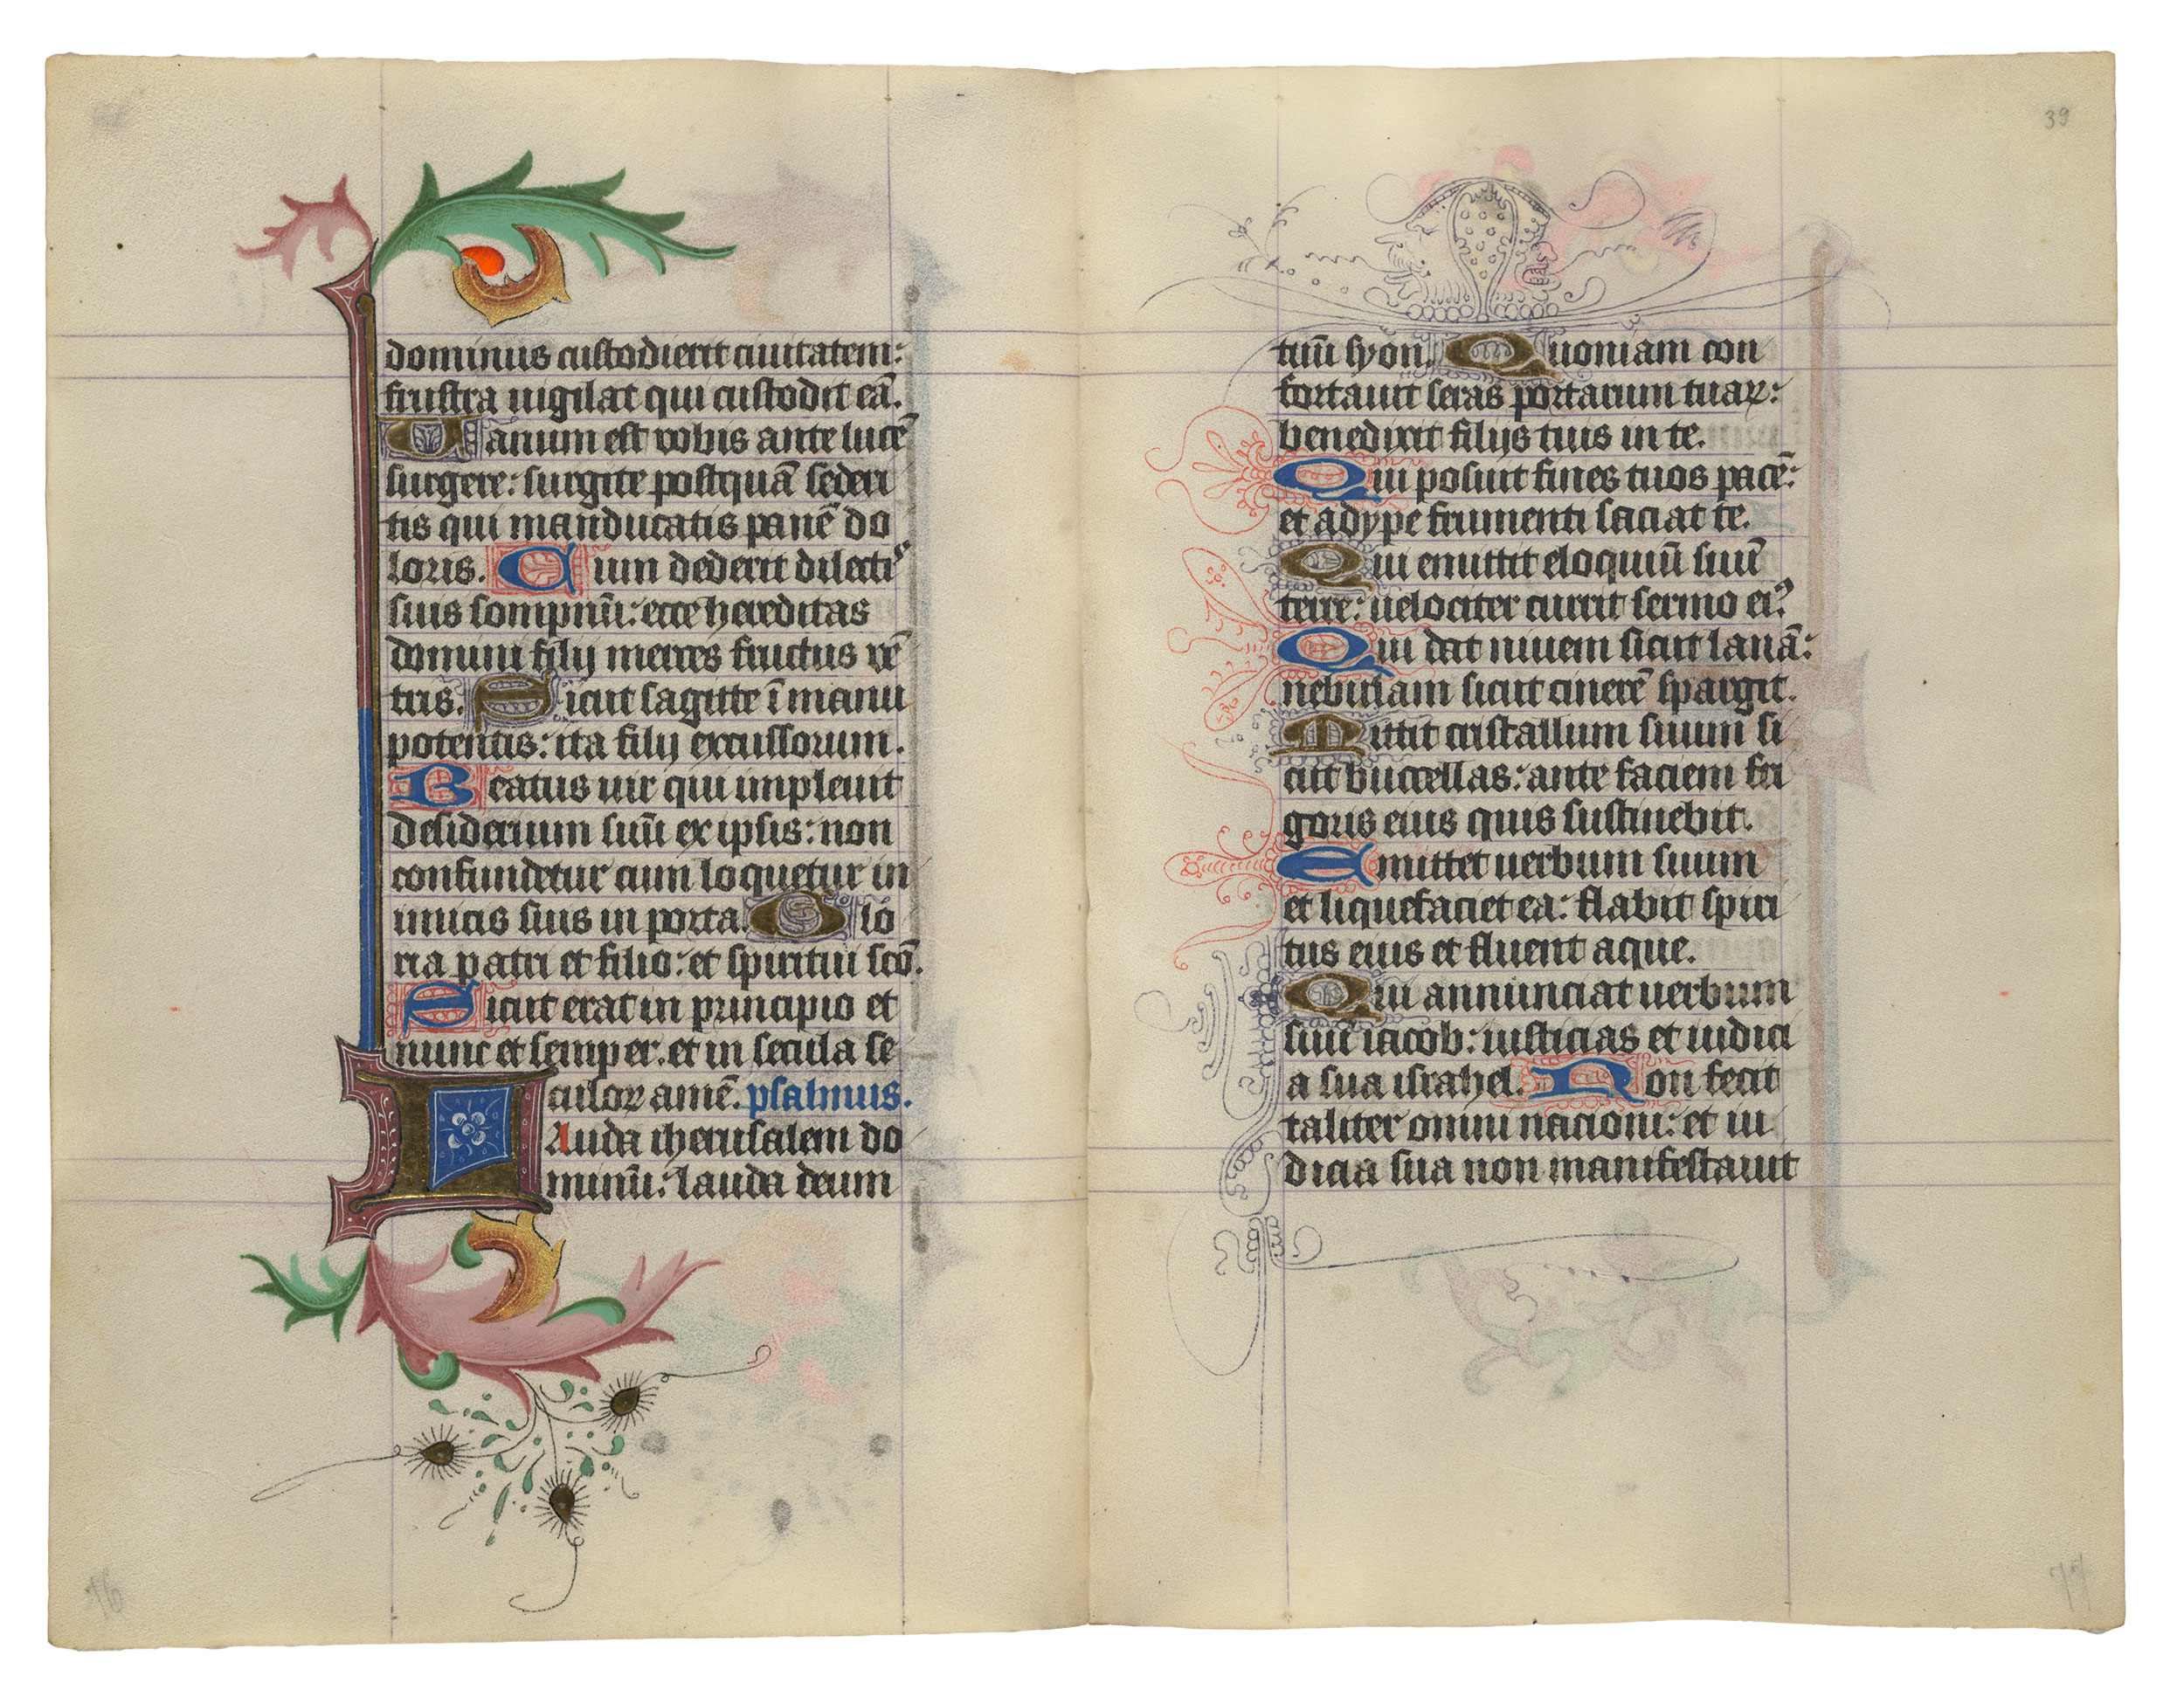 dominus custodierit ciuitatem:
frustra uigilat qui custodit eā.
Uanum est vobis ante lucē
surgere: surgite postquā sederi
tis qui manducatis panē do
loris. Cum dederit dilectis
suis sompnū: ecce hereditas
domini filij merces fructus vē
tris. Sicut sagitte ī manu
potentis: ita filij excussorum.
Beatus uir qui impleuit
desiderium suū ex ipsis: non
confundetur cum loquetur in
imicis suis in porta. Glo
ria patri et filio: et spiritui scō.
Sicut erat in principio et
nunc et semper. et in secula se
culoꝝ amē. psalmus.
Lauda iherusalem do
minū: lauda deum
39
tuū syon. Quoniam con
fortauit seras portarum tuaꝝ:
benedixit filijs tuis in te.
Qui posuit fines tuos pacē:
et adype frumenti saciat te.
Qui emittit eloquiū suū
terre: uelociter currit sermo eiꝰ
Qui dat niuem sicut lanā:
nebulam sicut cinerē spargit.
Mittit cristallum suum si
cut buccellas: ante faciem fri
goris eius quis sustinebit.
Emittet uerbum suum
et liquefaciet ea: flabit spiri
tus eius et fluent aque.
Qui annunciat uerbum
suū iacob: iusticias et iudici
a sua israhel. Non fecit
taliter omni nacioni: et iu
dicia sua non manifestauit
76
77